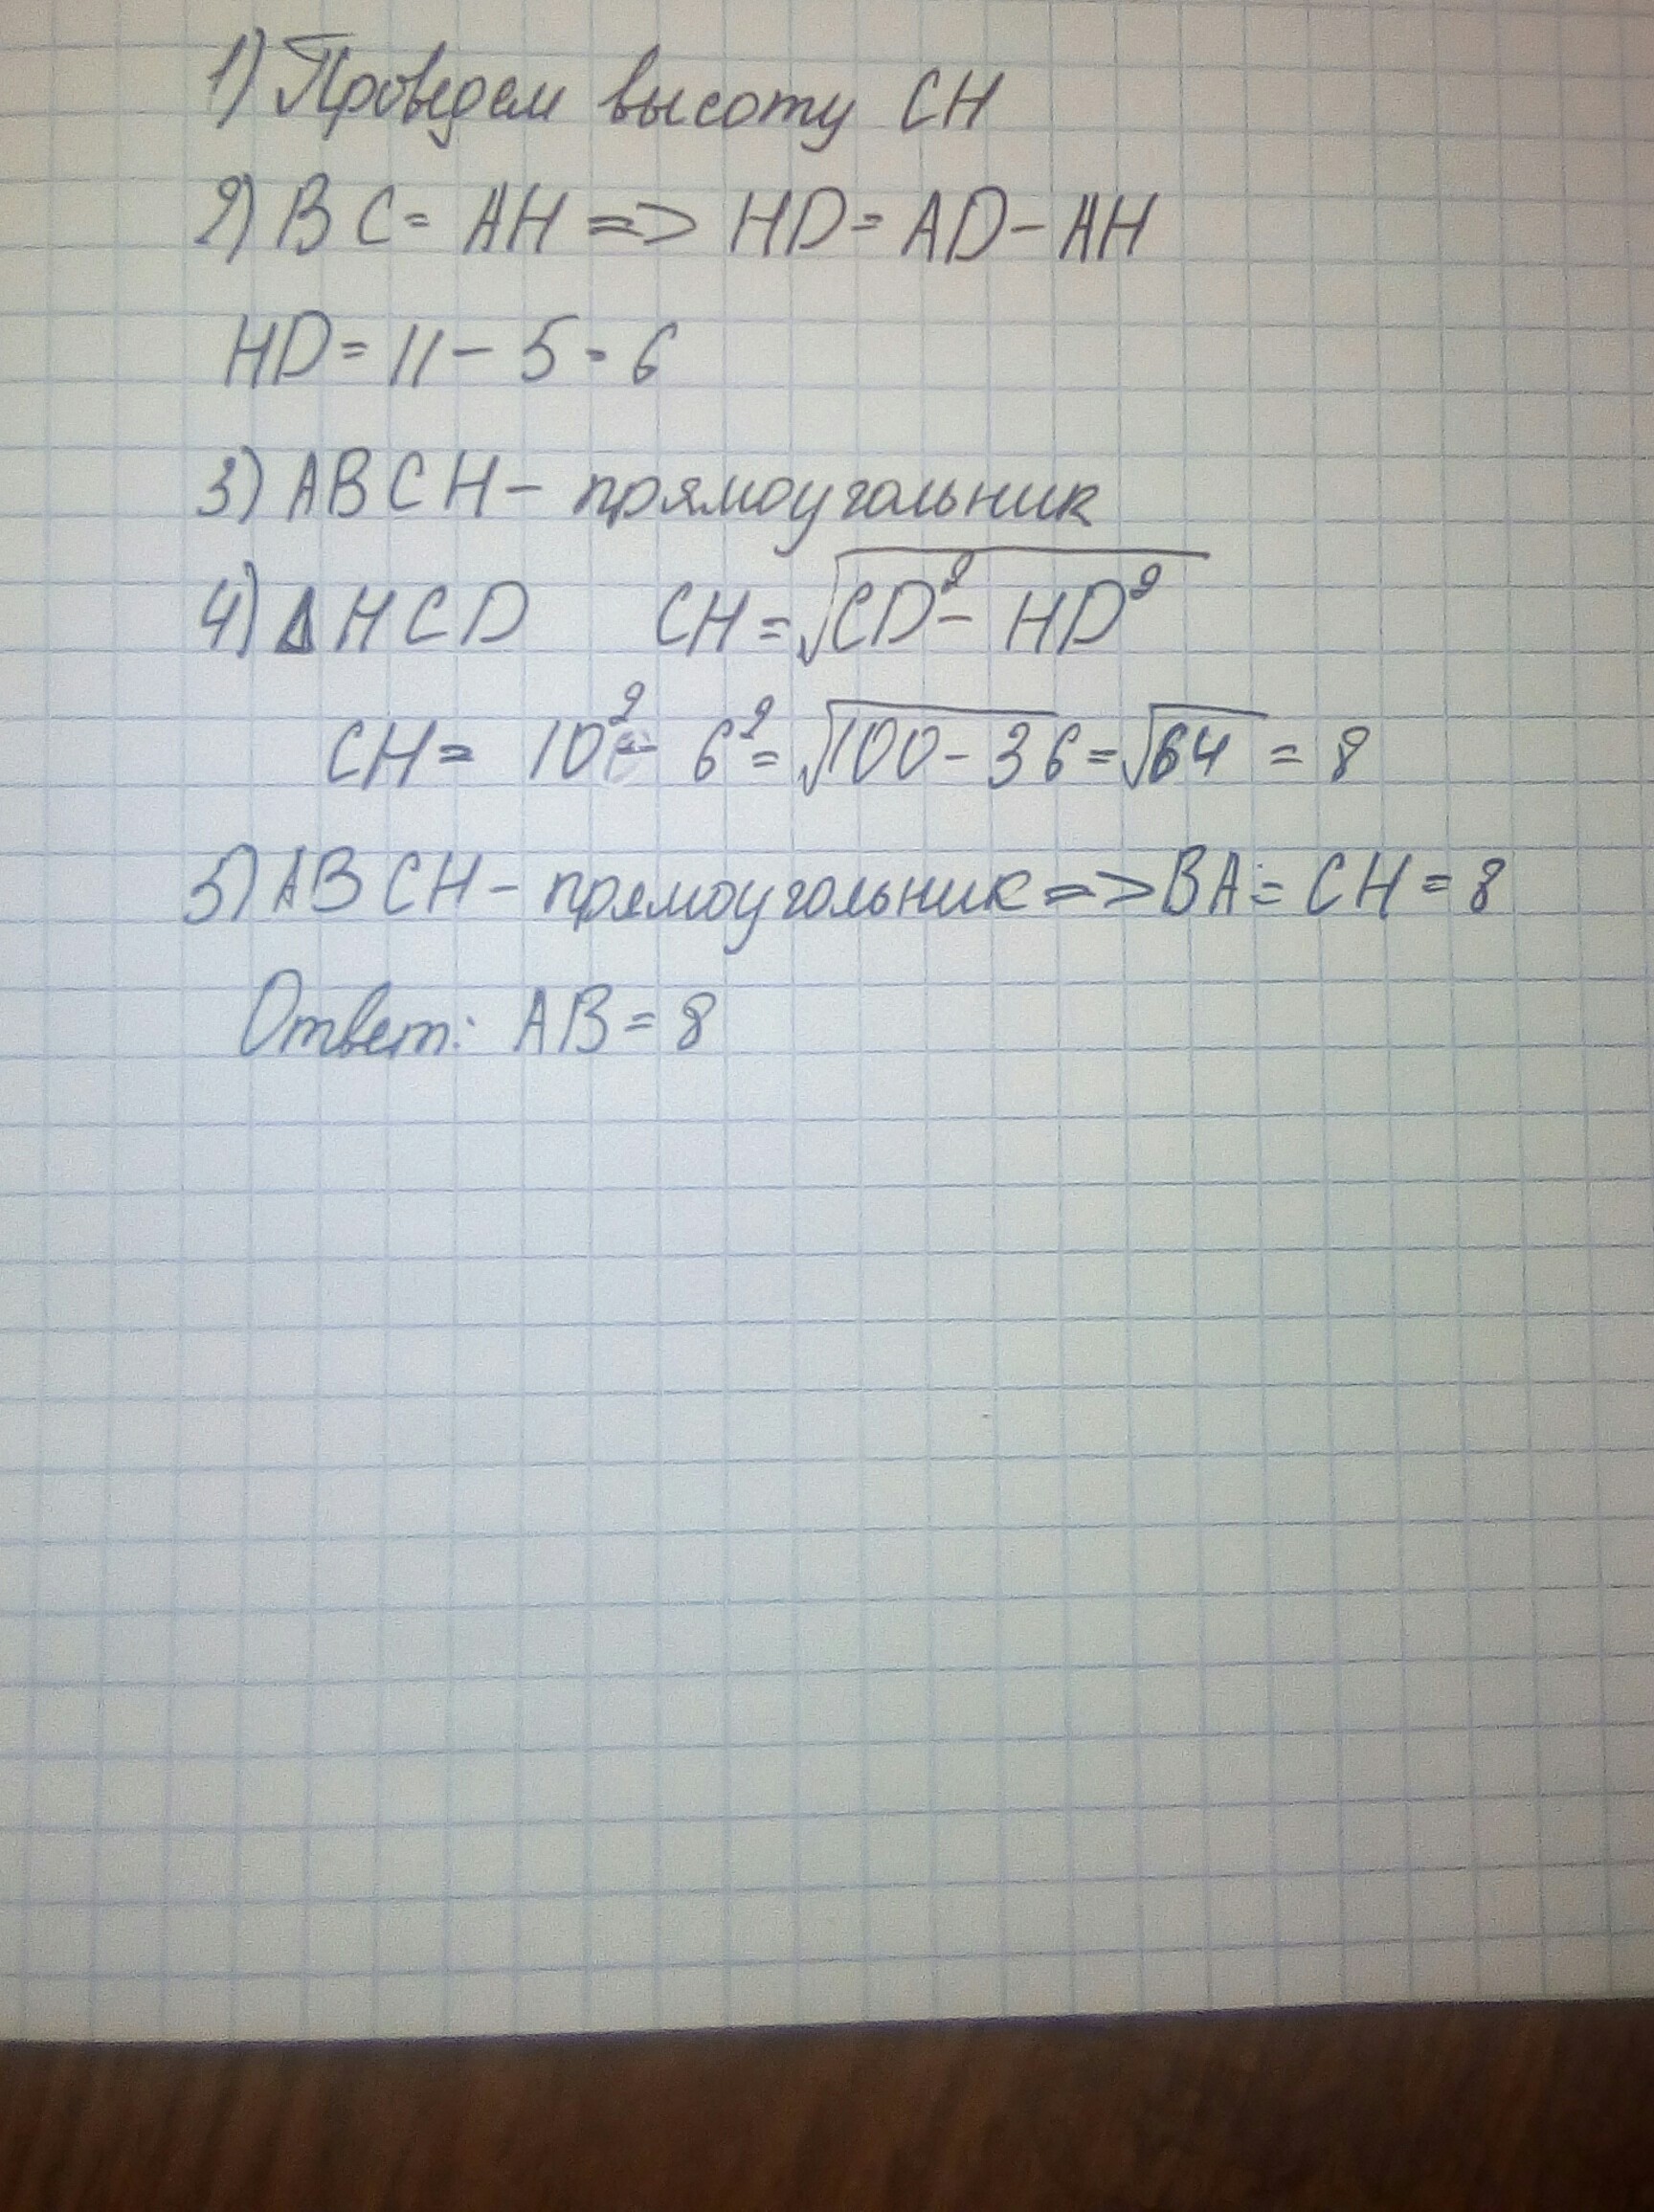 1) Проведем высоту CH
2) BC = AH => HD = AD - AH
HD = 11 - 5 = 6
3) ABCH - прямоугольник
4) Δ HCD CH = √CD² - HD²
CH = 10² - 6² = √100 - 36 = √64 = 8
5) ABCH - прямоугольник => BA = CH = 8
Ответ: AB = 8